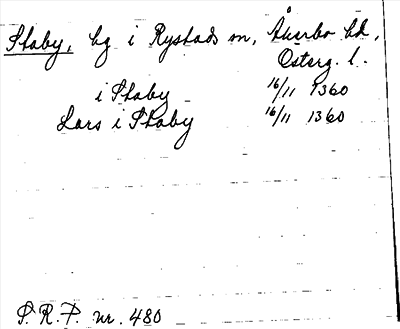 Staby, by i Rystads sn, Åkerbo hd,
Österg. l.
i Staby 16/11 1360
Lars i Staby 16/11 1360
S. R. P. nr. 480